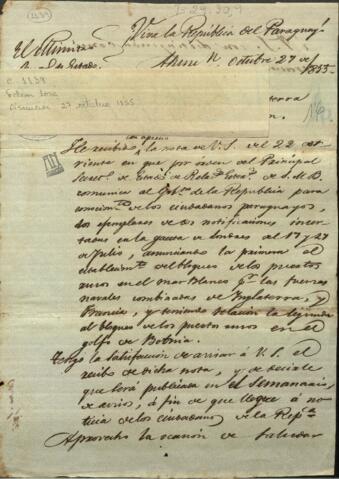 Viva la República del Paraguay!
El Ministro
de Estado.
Asuncn Octubre 27 de 1855
C. 1138
Asunción 27 octubre 1855
He recibido la nota de V.S. del 22 del
corriente en que por orden del Principal
Secreto de Estado de Relas Extras de S.M.B.
comunica al Gobno de la República para
conocimto de los ciudadanos paraguayos,
dos ejemplares de dos notificaciones incer-
tadas en la gaceta de Londres del 17 y 27
de Julio, anunciando la primera el
establecimto del bloqueo de los puertos
rusos en el mar Blanco pr las fuerzas
navales combinadas de Inglaterra, y
Francia, y teniendo relacion la segunda
al bloqueo de los puertos rusos en el
golfo de Botnia.
Tengo la satisfaccion de avisar á V.S. el
recibo de dicha nota, y de decirle
que será publicada en el Semanario
de avisos, á fin de que llegue á no-
ticia de los ciudadanos de la Repca
Aprovecho la ocasion de saludar